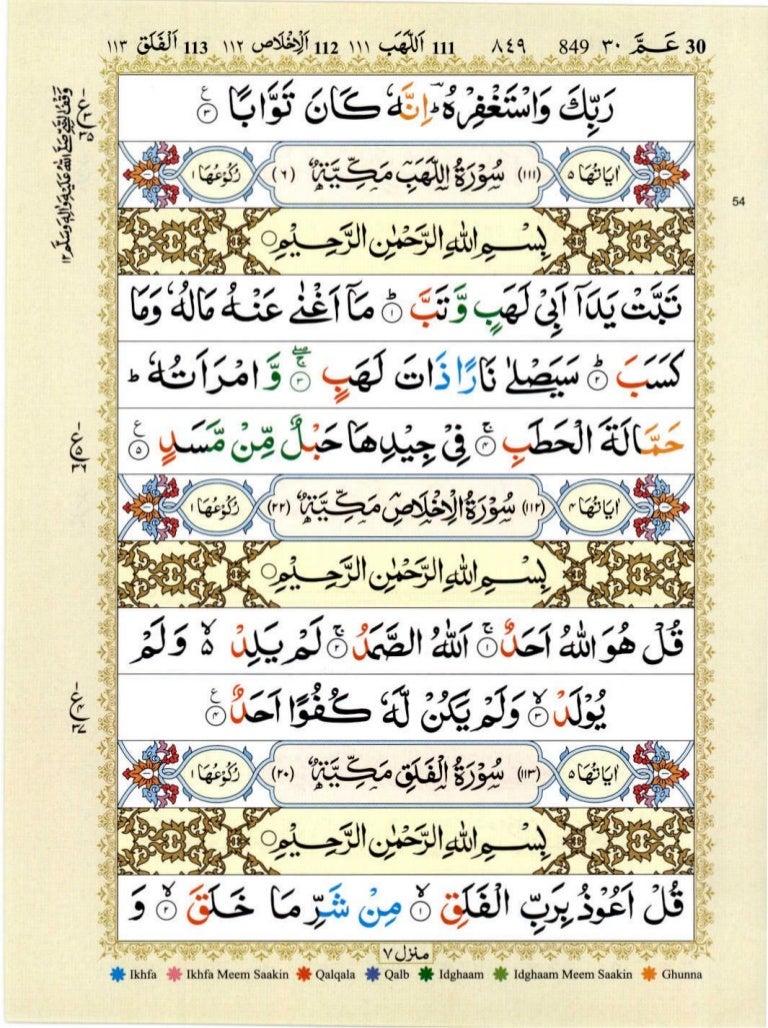 30 عَـمَّ ٣٠ 849 ٨٤٩ 111 اَللَّهَب ١١١ 112 اَلْاِخْلَاص ١١٢ 113 اَلْفَلَق ١١٣
رَبِّكَ وَاسْتَغْفِرْهُ ؕ اِنَّهٗ كَانَ تَوَّابًا ۝٣ ع
اٰيَاتُهَا ٥ (١١١) سُوْرَةُ اللَّهَبِ مَكِّيَّةٌ (٦) رُكُوْعُهَا ١
54
بِسْمِ اللّٰهِ الرَّحْمٰنِ الرَّحِيْمِ ۝
تَبَّتْ يَدَاۤ اَبِىْ لَهَبٍ وَّتَبَّ ؕ ۝١ مَاۤ اَغْنٰى عَنْهُ مَالُهٗ وَمَا
كَسَبَ ؕ ۝٢ سَيَصْلٰى نَارًا ذَاتَ لَهَبٍ ۝٣ وَّ امْرَاَتُهٗ ؕ
حَمَّالَةَ الْحَطَبِ ۚ ۝٤ فِىْ جِيْدِهَا حَبْلٌ مِّنْ مَّسَدٍ ۝٥ ع
اٰيَاتُهَا ٤ (١١٢) سُوْرَةُ الْاِخْلَاصِ مَكِّيَّةٌ (٢٢) رُكُوْعُهَا ١
بِسْمِ اللّٰهِ الرَّحْمٰنِ الرَّحِيْمِ ۝
قُلْ هُوَ اللّٰهُ اَحَدٌ ۚ ۝١ اَللّٰهُ الصَّمَدُ ۚ ۝٢ لَمْ يَلِدْ ۙ وَلَمْ
يُوْلَدْ ۙ ۝٣ وَلَمْ يَكُنْ لَّهٗ كُفُوًا اَحَدٌ ۝٤ ع
اٰيَاتُهَا ٥ (١١٣) سُوْرَةُ الْفَلَقِ مَكِّيَّةٌ (٢٠) رُكُوْعُهَا ١
بِسْمِ اللّٰهِ الرَّحْمٰنِ الرَّحِيْمِ ۝
قُلْ اَعُوْذُ بِرَبِّ الْفَلَقِ ۙ ۝١ مِنْ شَرِّ مَا خَلَقَ ۙ ۝٢ وَ
منزل ٧
Ikhfa Ikhfa Meem Saakin Qalqala Qalb Idghaam Idghaam Meem Saakin Ghunna